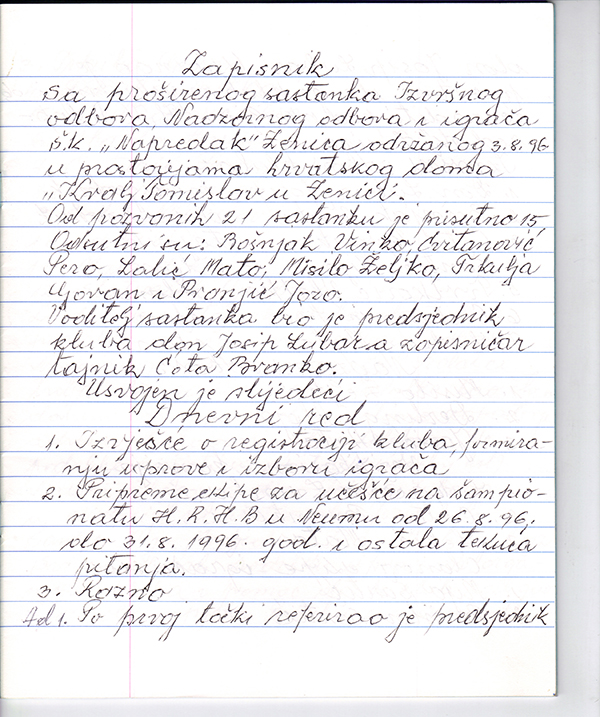 Zapisnik
sa proširenog sastanka Izvršnog
odbora, Nadzornog odbora i igrača
š.k. „Napredak" Zenica održanog 3.8.96
u prostorijama hrvatskog doma
„Kralj Tomislav u Zenici.
Od pozvanih 21 sastanku je prisutno 15
Odsutni su: Bošnjak Vinko, Cvitanović
Pero, Lalić Mato, Misilo Željko, Trkulja
Jovan i Pranjić Jozo.
Voditelj sastanka bio je predsjednik
kluba don Josip Lubar a zapisničar
tajnik Ćota Branko.
Usvojen je slijedeći
Dnevni red
1. Izvješće o registraciji kluba, formira-
nju uprove i izboru igrača
2. Pripreme ekipe za učešće na šampio-
natu H.R.H.B u Neumu od 26.8.96.
do 31.8.1996. god. i ostala tekuća
pitanja.
3. Razno
Ad 1. Po prvoj tački referirao je predsjednik